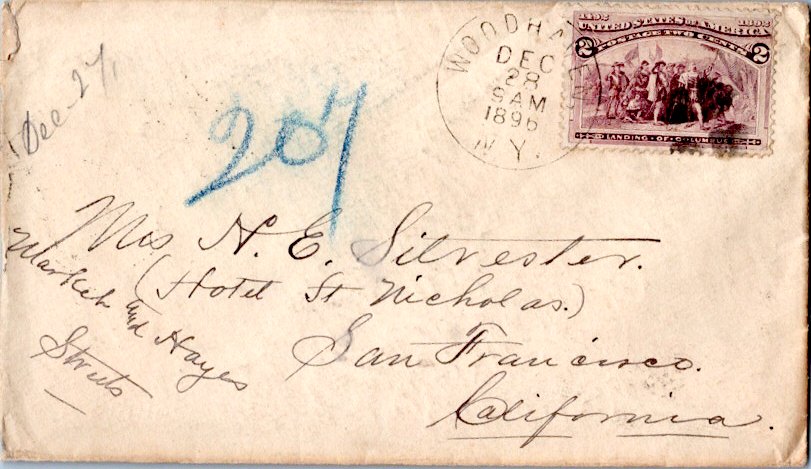 Dec-27,
207
WOODHAVEN
DEC
28
9AM
1896
N.Y.
1492 1892
UNITED STATES OF AMERICA
POSTAGE TWO CENTS
2 2
LANDING OF COLUMBUS
Mrs H. E. Silvester.
(Hotel St Nicholas.)
San Francisco.
California.
Market and Hayes
Streets